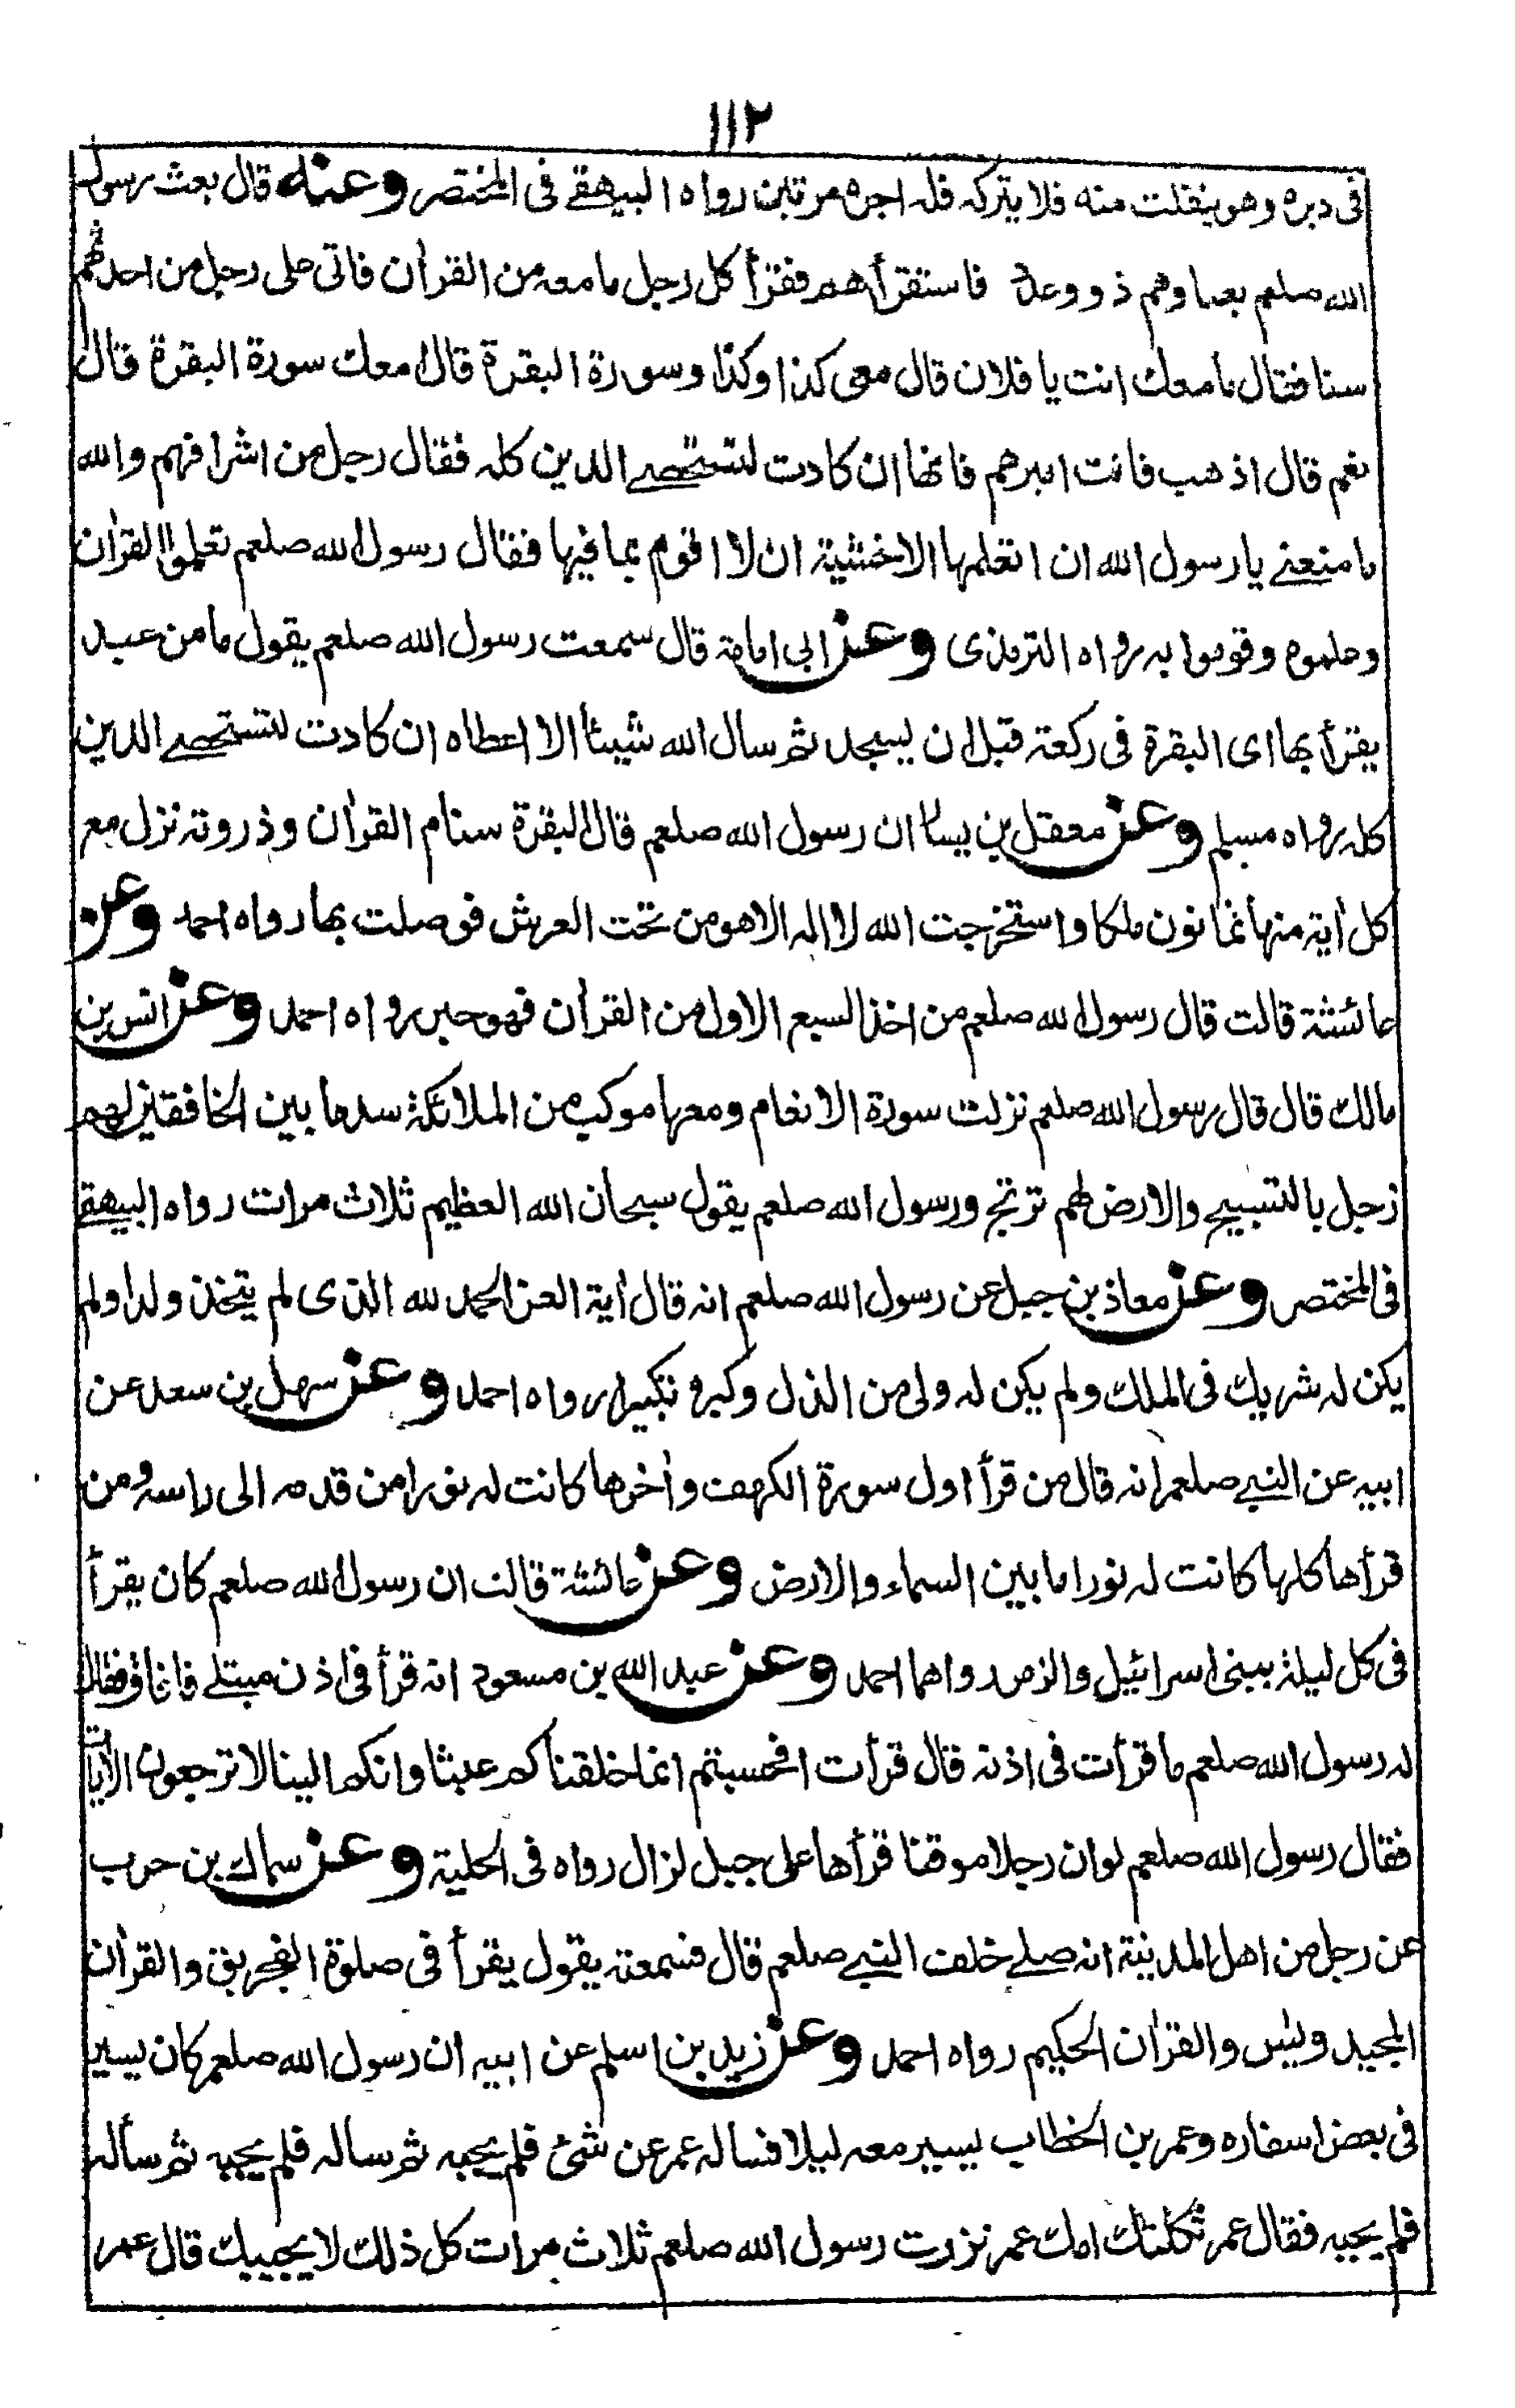 ١١٢
فى دبره وهو يتفلت منه فلا يتركه فله اجره مرتين رواه البيهقے فى المختصر وعنه قال بعث رسول
الله صلعم بعثا وهم ذوو عدد فاستقرأهم فقرأ كل رجل ما معه من القراٰن فاتى على رجل من احدثهم
سنا فقال ما معك انت يا فلان قال معى كذا وكذا وسورة البقرة قال امعك سورة البقرة قال
نعم قال اذهب فانت اميرهم فانها ان كادت لتستحصے الدين كله فقال رجل من اشرافهم والله
ما منعنے يا رسول الله ان اتعلمها الا خشية ان لا اقوم بما فيها فقال رسول الله صلعم تعلموا القراٰن
وعلموه وقوموا به رواه الترمذى وعن ابى امامة قال سمعت رسول الله صلعم يقول ما من عبد
يقرأ بها اى البقرة فى ركعة قبل ان يسجد ثم سال الله شيئا الا اعطاه ان كادت لتستحصے الدين
كله رواه مسلم وعن معقل بن يسار ان رسول الله صلعم قال البقرة سنام القراٰن وذروته نزل مع
كل اٰية منها ثمانون ملكا واستخرجت الله لا اله الا هو من تحت العرش فوصلت بها رواه احمد وعن
عائشة قالت قال رسول الله صلعم من اخذ السبع الاول من القراٰن فهو حبر رواه احمد وعن انس بن
مالك قال قال رسول الله صلعم نزلت سورة الانعام ومعها موكب من الملائكة سد ما بين الخافقين لهم
زجل بالتسبيح والارض لهم ترتج ورسول الله صلعم يقول سبحان الله العظيم ثلاث مرات رواه البيهقے
فى المختصر وعن معاذ بن جبل عن رسول الله صلعم انه قال اٰية العز الحمد لله الذى لم يتخذ ولدا ولم
يكن له شريك فى الملك ولم يكن له ولى من الذل وكبره تكبيرا رواه احمد وعن سهل بن سعد عن
ابيه عن النبے صلعم انه قال من قرأ اول سورة الكهف واٰخرها كانت له نورا من قدمه الى راسه ومن
قرأها كلها كانت له نورا ما بين السماء والارض وعن عائشة قالت ان رسول الله صلعم كان يقرأ
فى كل ليلة ببنى اسرائيل والزمر رواهما احمد وعن عبد الله بن مسعود انه قرأ فى اذن مبتلے فافاق فقال
له رسول الله صلعم ما قرأت فى اذنه قال قرأت افحسبتم انما خلقناكم عبثا وانكم الينا لا ترجعون الاٰيات
فقال رسول الله صلعم لو ان رجلا موقنا قرأها على جبل لزال رواه فى الحلية وعن سماك بن حرب
عن رجل من اهل المدينة انه صلے خلف النبے صلعم قال فسمعته يقول يقرأ فى صلوة الفجر بق والقراٰن
المجيد ويٰس والقراٰن الحكيم رواه احمد وعن زيد بن اسلم عن ابيه ان رسول الله صلعم كان يسير
فى بعض اسفاره وعمر بن الخطاب يسير معه ليلا فساله عمر عن شئ فلم يجبه ثم ساله فلم يجبه ثم سأله
فلم يجبه فقال عمر ثكلتك امك عمر نزرت رسول الله صلعم ثلاث مرات كل ذلك لا يجيبك قال عمر